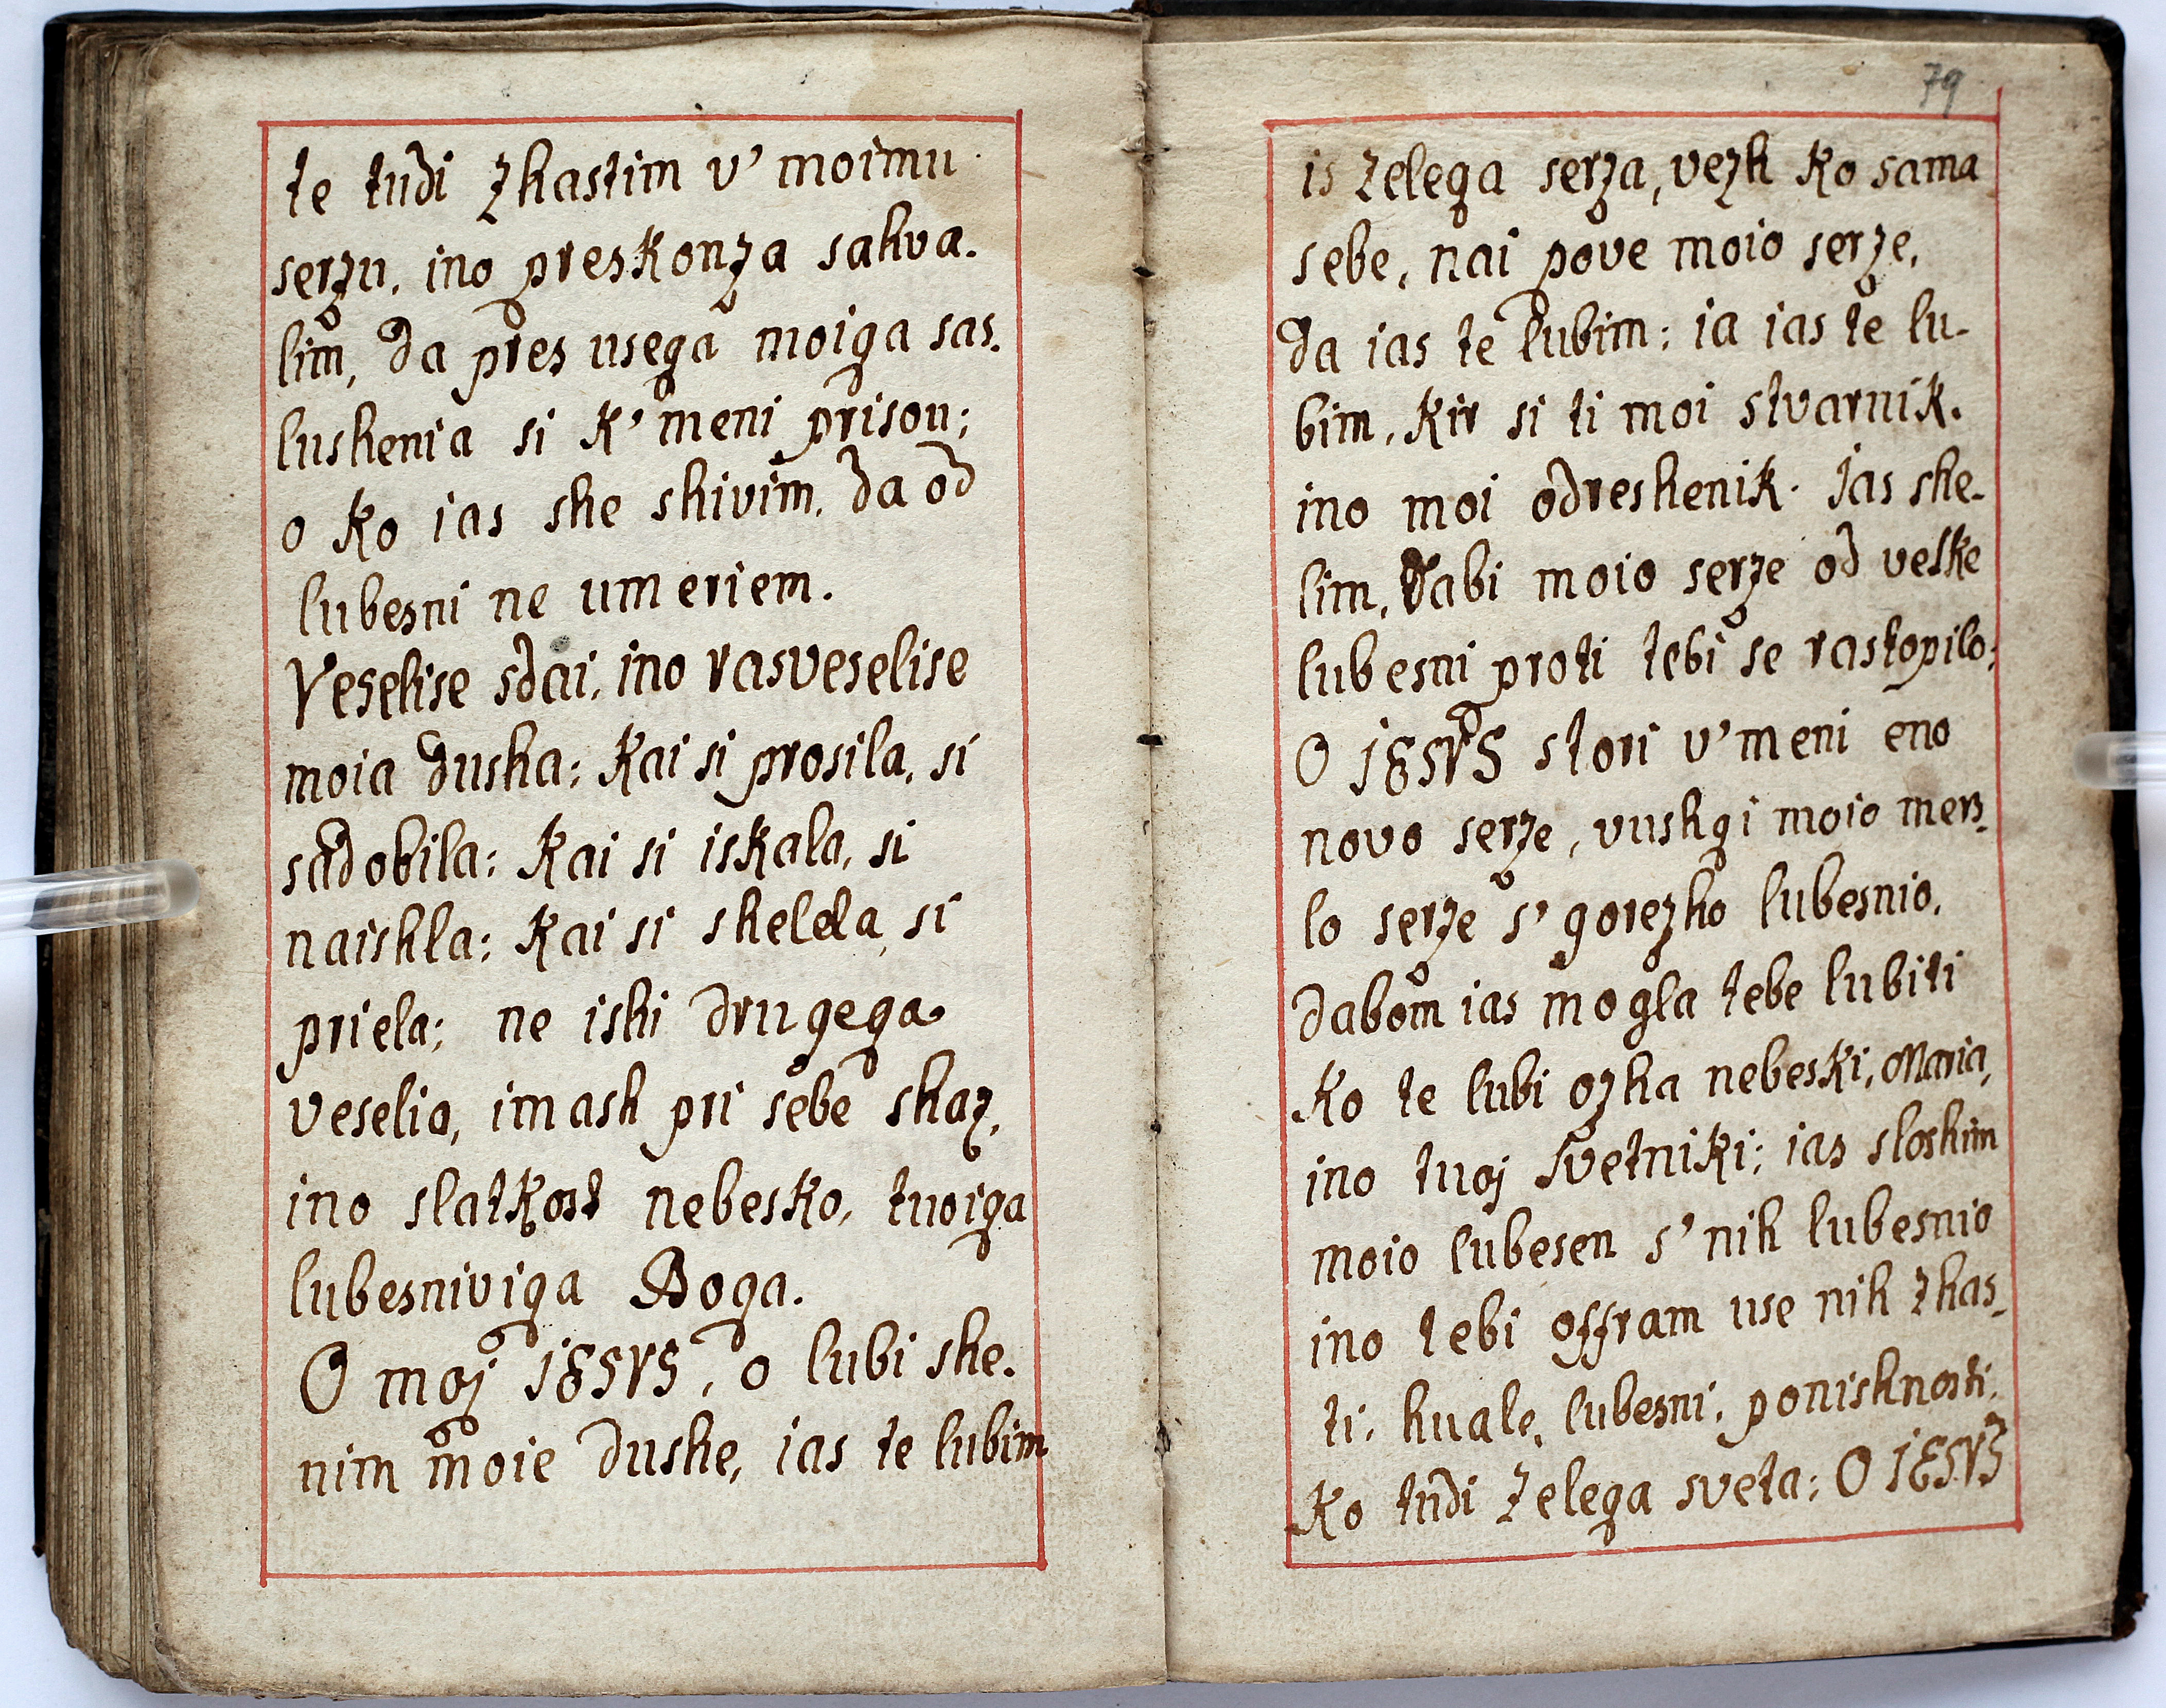 te tudi zhastim v' moimu
serzu, ino preskonza sahva-
lim, da pres usega moiga sas-
lushenia si k' meni prisou;
o ko ias she shivim, da od
lubesni ne umeriem.
Veselise sdai, ino rasveselise
moia dusha; kai si prosila, si
sadobila; kai si iskala, si
naishla; kai si shelela, si
priela; ne ishi drugega
veselia, imash pri sebe shaz,
ino slatkost nebesko, tuoiga
lubesniviga Boga.
O moj JESVS, o lubi she-
nim moie dushe, ias te lubim
79
is zelega serza, vezh ko sama
sebe, nai pove moio serze,
da ias te lubim; ia ias te lu-
bim, kir si ti moi stvarnik,
ino moi odreshenik. Jas she-
lim, dabi moio serze od velke
lubesni proti tebi se rastopilo;
O JESVS stori v' meni eno
novo serze, vushgi moio mers-
lo serze s' gorezho lubesnio,
dabom ias mogla tebe lubiti
ko te lubi ozha nebeski, Maria,
ino tuoj svetniki; ias sloshim
moio lubesen s' nih lubesnio
ino tebi offram use nih zhas-
ti, huale, lubesni, ponishnosti,
ko tudi zelega sveta; O JESVS